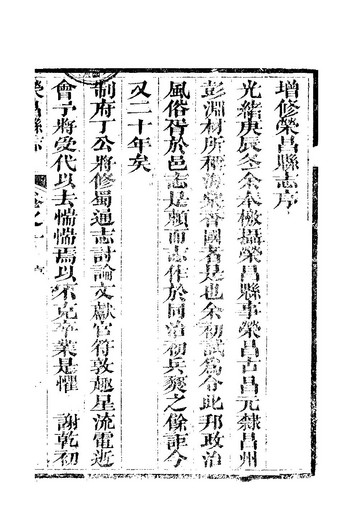 增修榮昌縣志序
光緒庚辰冬余奉檄攝榮昌縣事榮昌古昌元隸昌州
彭淵材所稱海棠香國者是也余初試爲令此邦政治
風俗胥於邑志是賴而志作於同治初兵燹之餘詎今
又二十年矣
制府丁公將修蜀通志討論文獻官符敦趣星流電逝
會予將受代以去惴惴焉以不克卒業是懼　謝乾初
榮昌縣志　卷之一　序